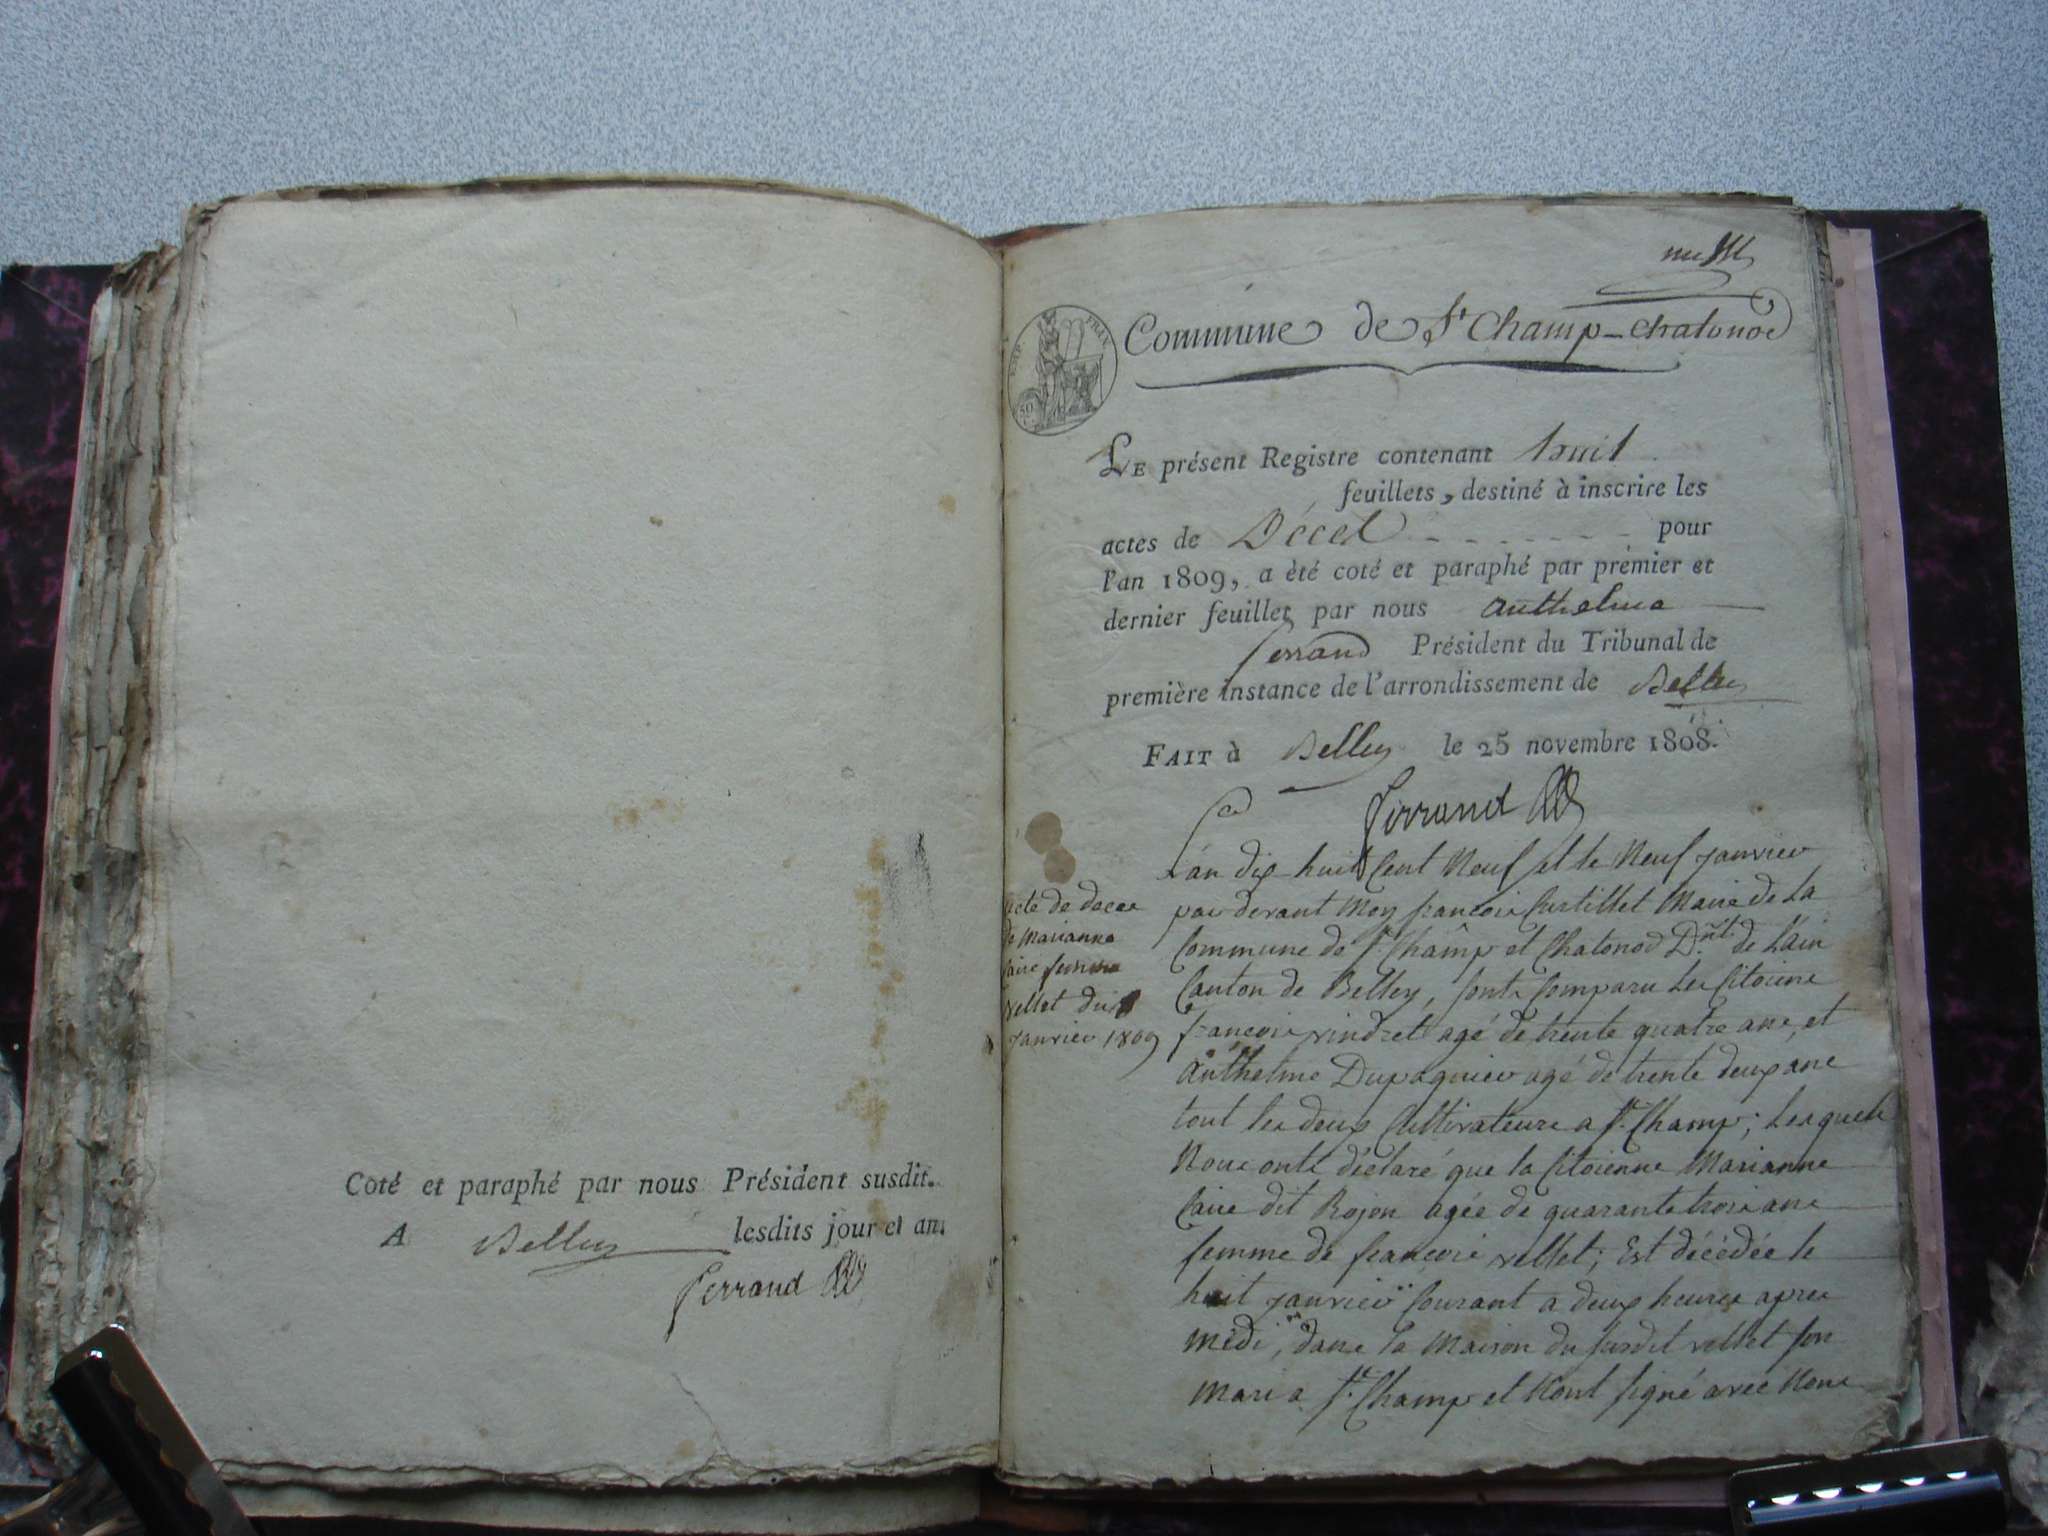 Coté et paraphé par nous Président susdit.
A Belley lesdits jour et an.
Ferrand
EMP. FRAN.
50
Commune de St Champ-Chatonod
LE présent Registre contenant huit
feuillets, destiné à inscrire les
actes de Décès - - - - - - pour
l'an 1809, a été coté et paraphé par prémier et
dernier feuillet par nous Anthelme
ferrand Président du Tribunal de
première instance de l'arrondissement de Belley
FAIT à Belley le 25 novembre 1808.
Ferrand
acte de deces
de Marianne
Caire femme
Vellet du
Janvier 1809
L'an dix huit Cent Neuf et le Neuf janvier
par devant Moy francois Curtillet Maire de La
Commune de St Champ et Chatonod D.nt de L'ain
Canton de Belley, sont Comparu Les Citoiens
francois vindret agé de trente quatre ans, et
Anthelme Dupagnier agé de trente deux ans
tout les deux Cultivateurs a St Champ; Lesquels
Nous onts déclaré que la Citoienne Marianne
Caire dit Rojon agée de quarante trois ans
femme de francois vellet; Est décédée le
huit janvier Courant a deux heures apres
Midi, dans la Maison du susdit vellet son
Mari a St Champ et Nont signé avec Nous